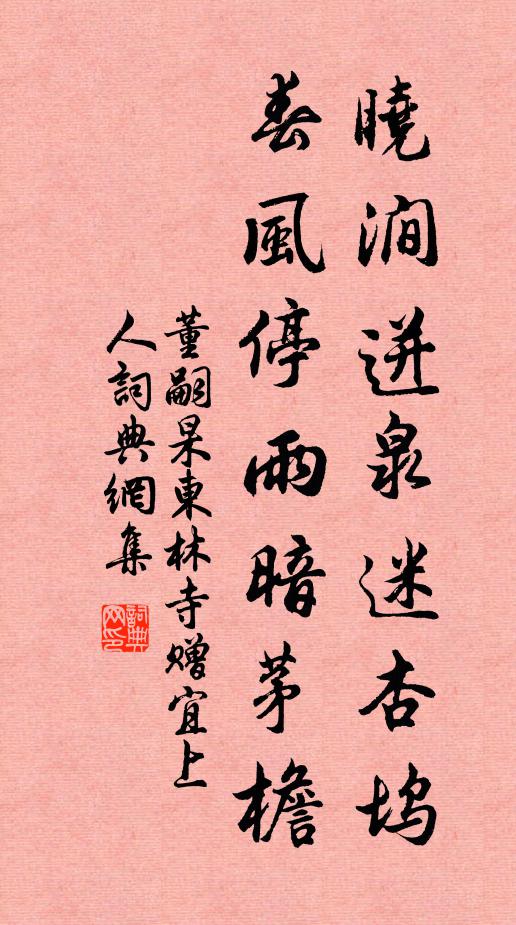 曉澗迸泉迷杏塢
春風停雨暗茅檐
董嗣杲東林寺贈宜上
人詞典網集
詞典網印